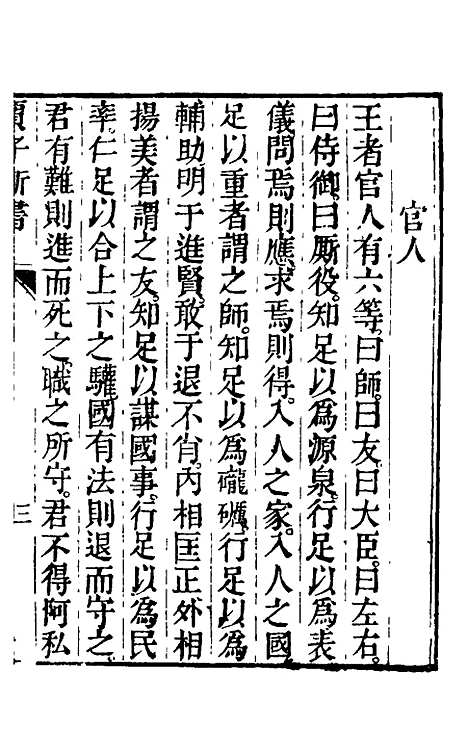 官人
王者官人有六等。曰師。曰友。曰大臣。曰左右。
曰侍御。曰厮役。知足以爲源泉。行足以爲表
儀。問焉則應。求焉則得。入人之家。入人之國
足以重者謂之師。知足以爲礲礪。行足以爲
輔助。明于進賢。敢于退不肖。內相匡正。外相
揚美者謂之友。知足以謀國事。行足以爲民
率。仁足以合上下之驩。國有法則退而守之。
君有難則進而死之。職之所守。君不得阿私
賈子新書
三